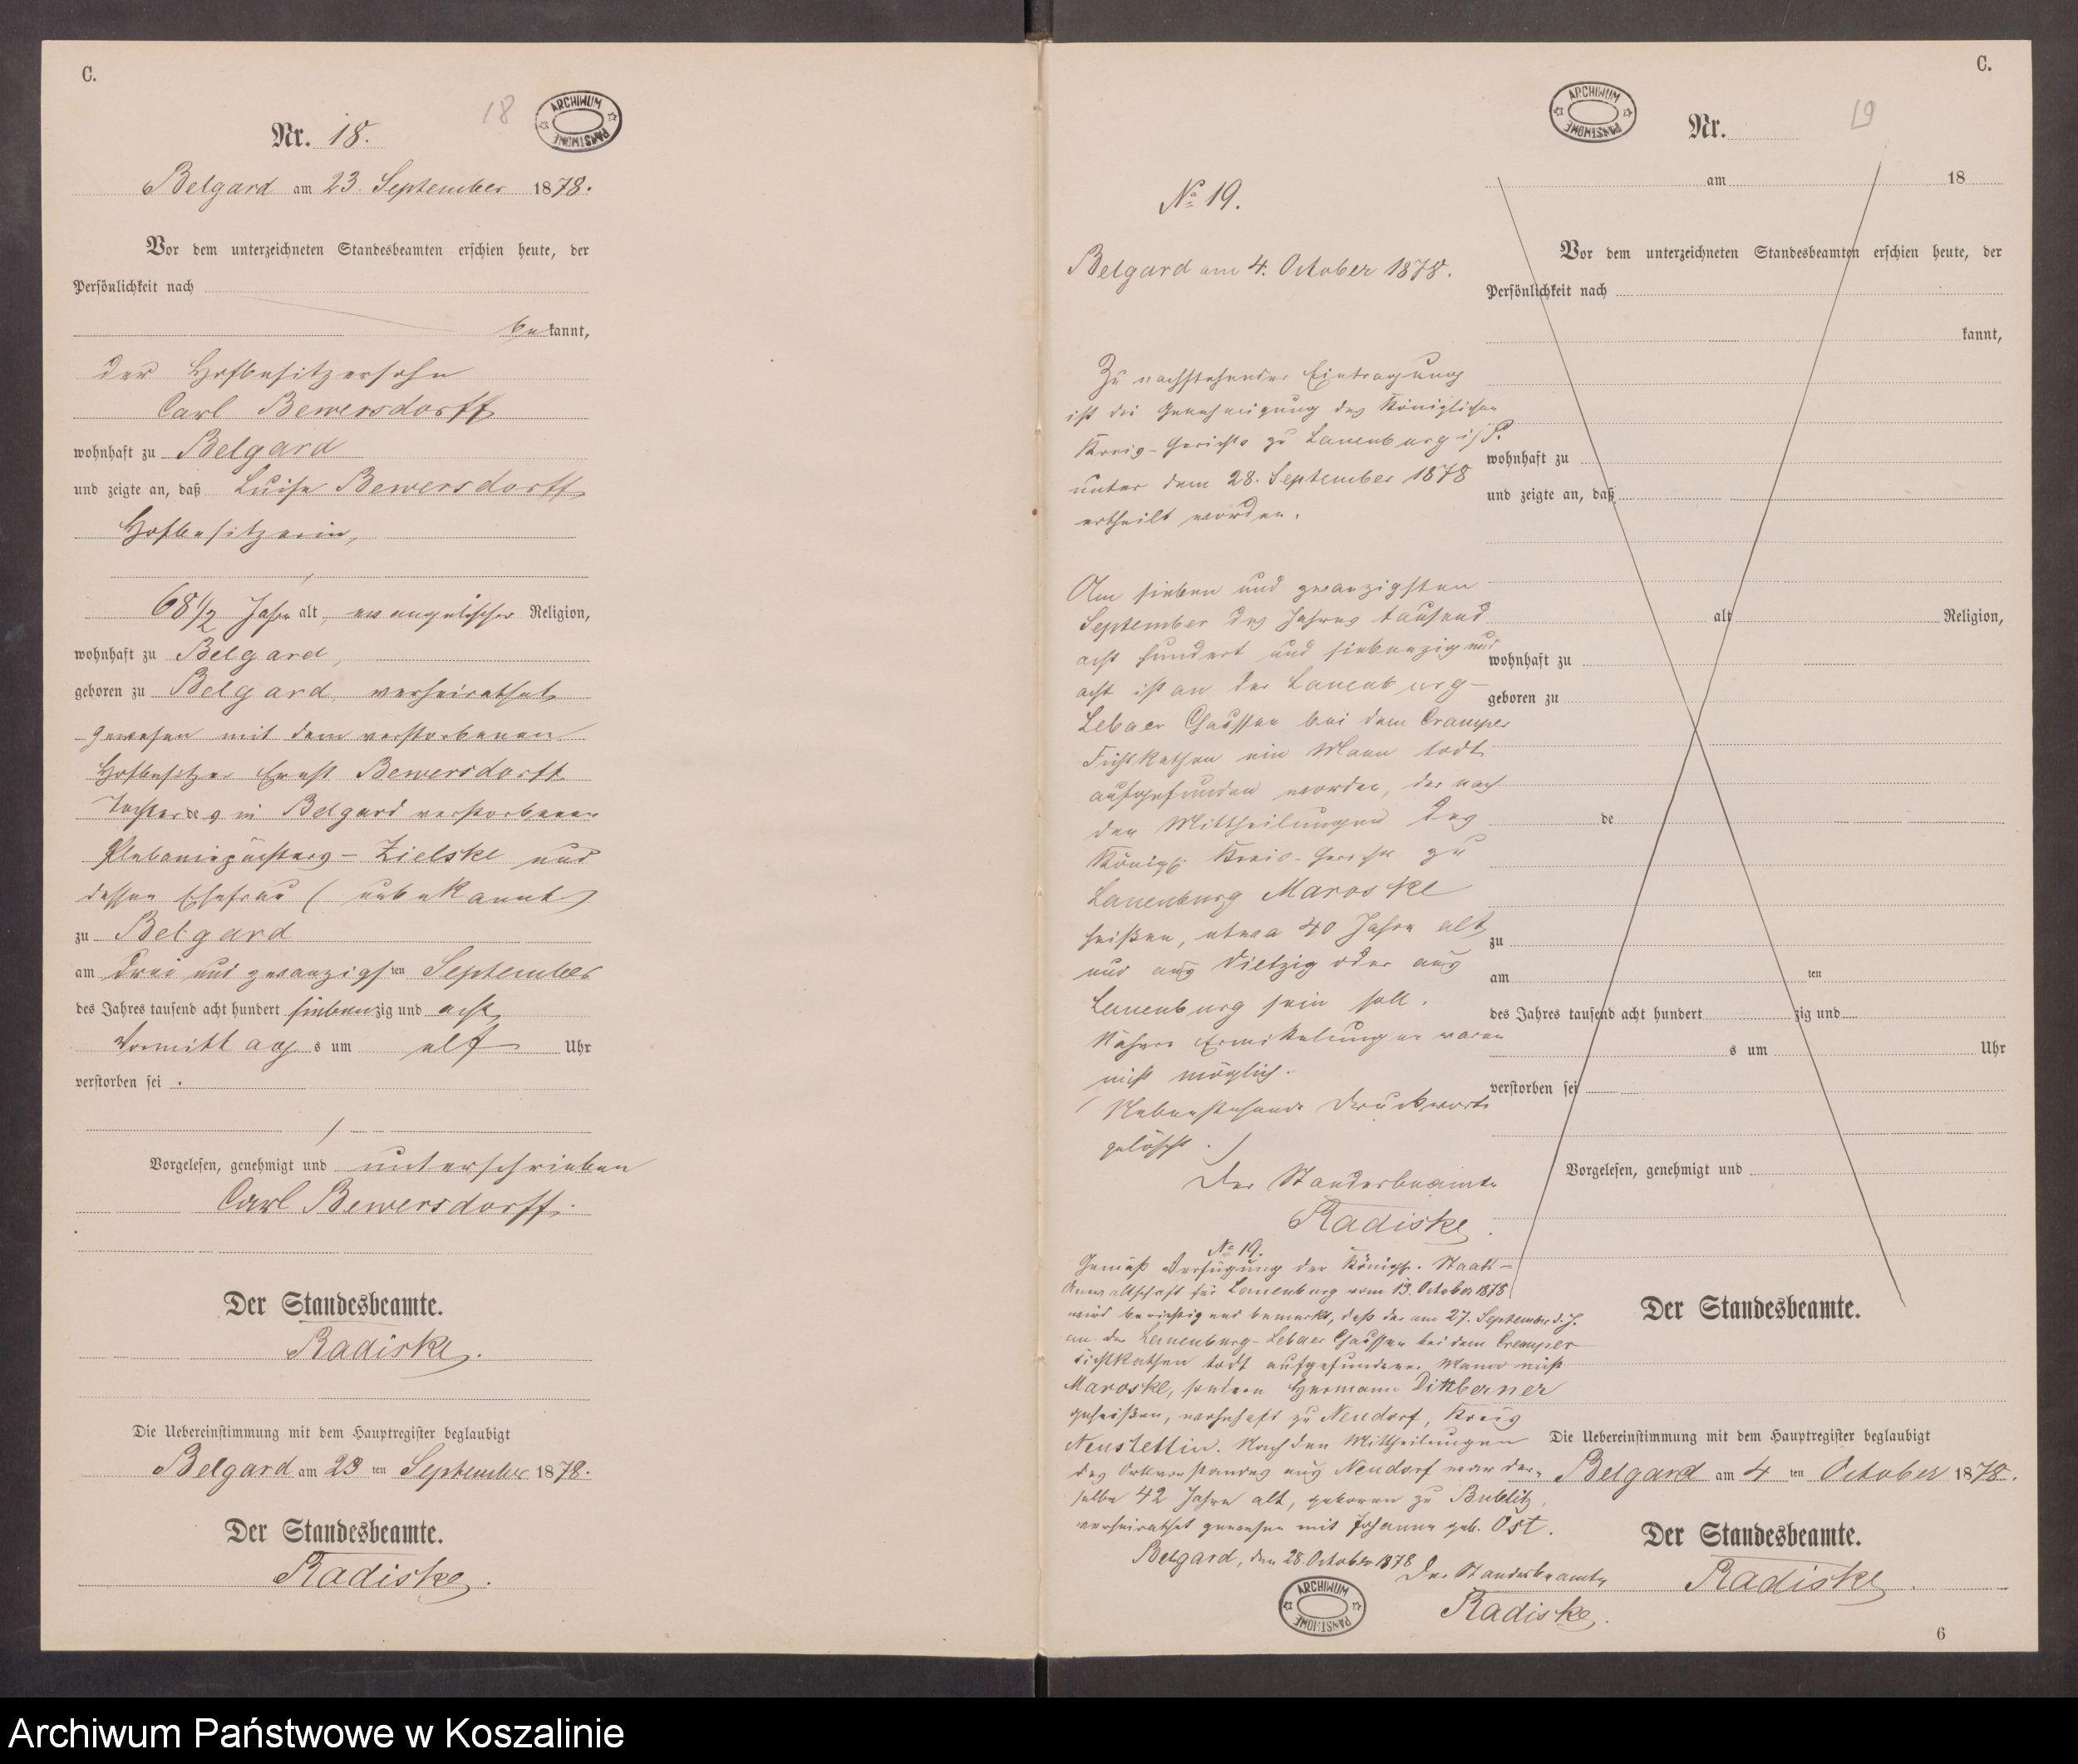 C.
18
ARCHIWUM PAŃSTWOWE
Nr. 18.
Belgard am 23. September 1878.
Vor dem unterzeichneten Standesbeamten erschien heute, der
Persönlichkeit nach
bekannt,
der Hofbesitzersohn
Carl Bewersdorff
wohnhaft zu Belgard
und zeigte an, daß Luise Bewersdorff
Hofbesitzerin,
68 1/2 Jahre alt, evangelischer Religion,
wohnhaft zu Belgard,
geboren zu Belgard, verheirathet
gewesen mit dem verstorbenen
Hofbesitzer Ernst Bewersdorff
Tochter des in Belgard verstorbenen
Zielske und
dessen Ehefrau (unbekannt)
zu Belgard
am drei und zwanzigsten September
des Jahres tausend acht hundert siebenzig und acht
Vormittags um elf Uhr
verstorben sei.
Vorgelesen, genehmigt und unterschrieben
Carl Bewersdorff.
Der Standesbeamte.
Radiske.
Die Uebereinstimmung mit dem Hauptregister beglaubigt
Belgard am 23 ten September 1878.
Der Standesbeamte.
Radiske.
C.
ARCHIWUM PAŃSTWOWE
Nr.
19
am 18
No 19.
Belgard am 4. October 1878.
Zu nachstehender Eintragung
ist die Genehmigung des Königlichen
Kreis-Gerichts zu Lauenburg i/P.
unter dem 28. September 1878
ertheilt worden.
Am sieben und zwanzigsten
September des Jahres tausend
acht hundert und siebenzig und
acht ist an der Lauenburg-
Lebaer Chaussee bei dem Cramper
Fichtkathen ein Mann todt
aufgefunden worden, der nach
den Mittheilungen des
Königl. Kreis-Gerichts zu
Lauenburg Maroske
heißen, etwa 40 Jahre alt
und aus Vietzig oder aus
Lauenburg sein soll.
Nähere Ermittelungen waren
nicht möglich.
(Nebenstehende Druckworte
gelöscht.)
Der Standesbeamte
Radiske.
No 19.
Gemäß Verfügung der Königl. Staats-
Anwaltschaft für Lauenburg vom 19. October 1878
wird berichtigend bemerkt, daß der am 27. September d. J.
an der Lauenburg-Lebaer Chaussee bei dem Cramper
Fichtkathen todt aufgefundene Mann nicht
Maroske, sondern Hermann Dittberner
geheißen, wohnhaft zu Neudorf, Kreis
Neustettin. Nach den Mittheilungen
des Ortsvorstandes aus Neudorf war der-
selbe 42 Jahre alt, geboren zu Bublitz,
verheirathet gewesen mit Johanna geb. Ost.
Belgard, den 28. October 1878
Der Standesbeamte
Radiske.
ARCHIWUM PAŃSTWOWE
Vor dem unterzeichneten Standesbeamten erschien heute, der
Persönlichkeit nach
kannt,
wohnhaft zu
und zeigte an, daß
alt Religion,
wohnhaft zu
geboren zu
de
zu
am ten
des Jahres tausend acht hundert zig und
s um Uhr
verstorben sei
Vorgelesen, genehmigt und
Der Standesbeamte.
Die Uebereinstimmung mit dem Hauptregister beglaubigt
Belgard am 4 ten October 1878.
Der Standesbeamte.
Radiske.
6
Archiwum Państwowe w Koszalinie